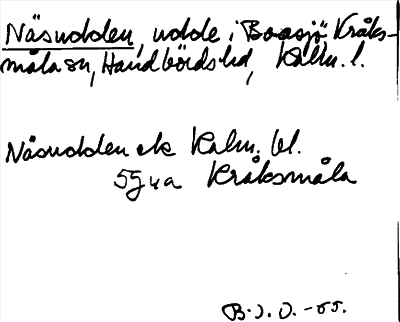 Näsudden, udde i Boasjö Kråks-
måla sn, Handbörds hd, Kalm. l.
Näsudden ek Kalm. bl.
5G 4a Kråksmåla
B.J.O. -65.